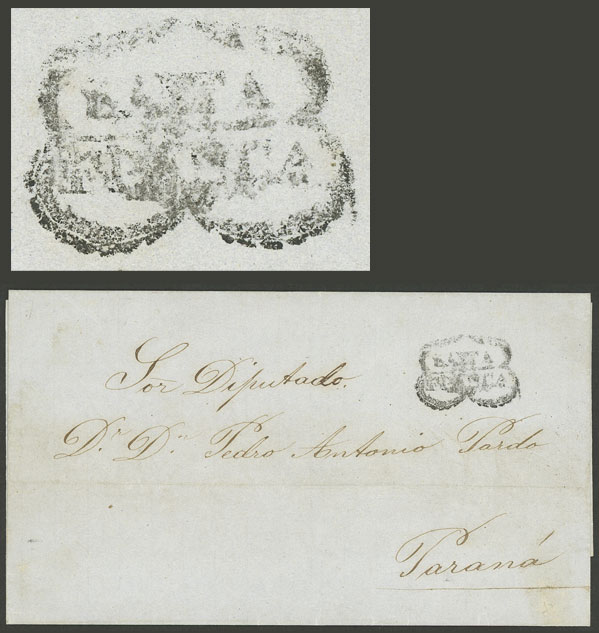 SALTA
FRANCA
SALTA
FRANCA
Sor Diputado.
D.r D.n Pedro Antonio Pardo
Paraná